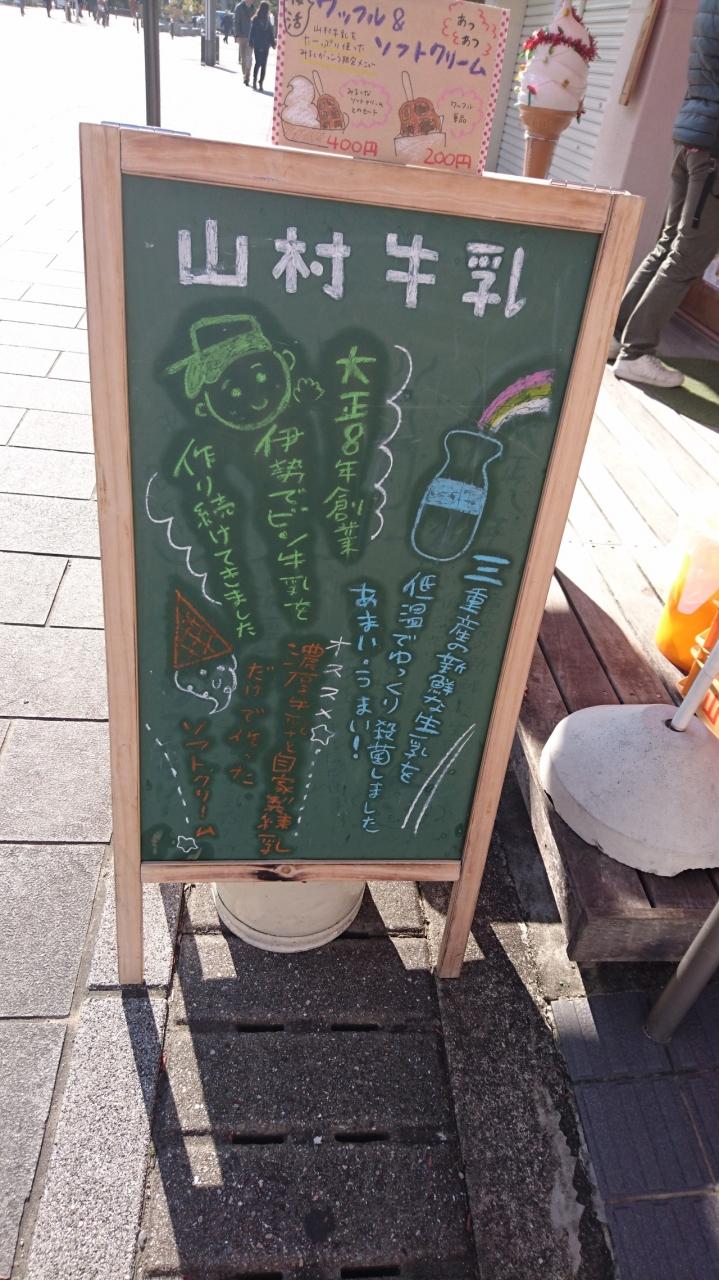 ワッフル&
ソフトクリーム
あつ
あつ
山村牛乳を
たーっぷり使った
400円
ワッフル
単品
200円
山村牛乳
大正8年創業
伊勢でビン牛乳を
作り続けてきました
三重産の新鮮な生乳を
低温でゆっくり殺菌しました
あまい・うまい!
オススメ
濃厚牛乳と自家製練乳
だけで作った
ソフトクリーム